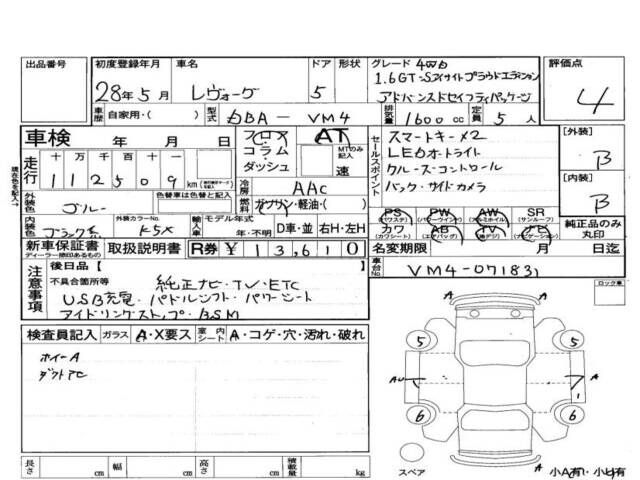 出品番号
初度登録年月 28年5月
車名 レヴォーグ
ドア 5
形状
グレード 4WD
1.6GT-Sアイサイトプラウドエディション
アドバンスドセイフティパッケージ
評価点 4
車歴 自家用・( )
型式 DBA- VM4
排気量 1600 cc
定員 5 人
車検 年 月 日
フロア コラム・ダッシュ
AT
MTのみ記入 速
セールスポイント
スマートキー×2
LEDオートライト
クルーズコントロール
バック・サイドカメラ
[外装] B
[内装] B
現在色を記入→
走行 十万 千百十一
112509 km
冷房 AAC
外装色 ブルー
色替車は色替前
燃料 ガソリン・軽油・( )
内装色 ブラック系
外装カラーNo. K5X
輸入車 モデル年式 年・不明
D車・並 右H・左H
PS (パワステ) PW (パワーウインド) AW (アルミホイル) SR (サンルーフ)
カワ (カワシート) AB (エアバッグ) TV (地デジ) ナビ (ナビゲーション)
純正品のみ丸印
新車保証書 ディーラー捺印あるもの
取扱説明書
R券 ¥13,610
名変期限 月 日迄
注意事項
後日品【 】
不具合箇所等
純正ナビ・TV・ETC
USB充電・パドルシフト・パワーシート
アイドリングストップ・BSM
車台No. VM4-071831
ロック車
検査員記入 ガラス A・X要ス 室内シート A・コゲ・穴・汚れ・破れ
ホイールA
ダクトAC
5 5
A A
AU
1
6 6
A
スペア
小A有・小U有
長さ cm 幅 cm 高さ cm 積載量 kg